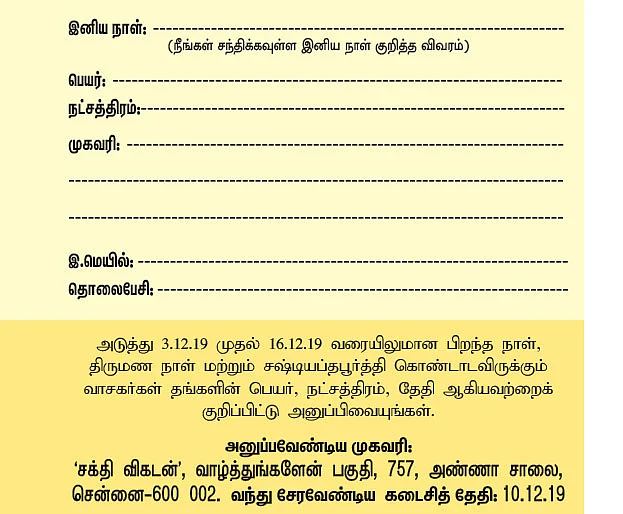 இனிய நாள்: ----------------------------------------------------------------
(நீங்கள் சந்திக்கவுள்ள இனிய நாள் குறித்த விவரம்)
பெயர்: ----------------------------------------------------------------------
நட்சத்திரம்:------------------------------------------------------------------
முகவரி: --------------------------------------------------------------------
-----------------------------------------------------------------------------
-----------------------------------------------------------------------------
இ.மெயில்: -------------------------------------------------------------------
தொலைபேசி: ----------------------------------------------------------------
அடுத்து 3.12.19 முதல் 16.12.19 வரையிலுமான பிறந்த நாள்,
திருமண நாள் மற்றும் சஷ்டியப்தபூர்த்தி கொண்டாடவிருக்கும்
வாசகர்கள் தங்களின் பெயர், நட்சத்திரம், தேதி ஆகியவற்றைக்
குறிப்பிட்டு அனுப்பிவையுங்கள்.
அனுப்பவேண்டிய முகவரி:
‘சக்தி விகடன்’, வாழ்த்துங்களேன் பகுதி, 757, அண்ணா சாலை,
சென்னை-600 002. வந்து சேரவேண்டிய கடைசித் தேதி: 10.12.19